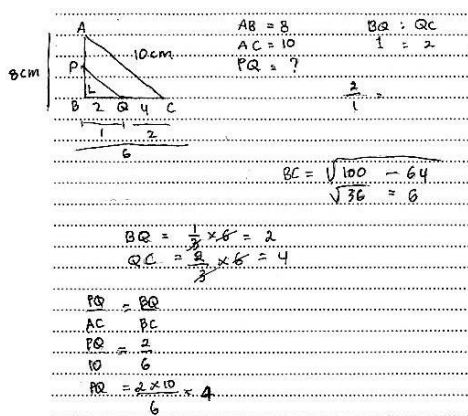 A
10 cm
8 cm
P
B 2 Q 4 C
1 2
6
AB = 8
AC = 10
PQ = ?
BQ : QC
1 = 2
2/1 =
BC = √100 - 64
√36 = 6
BQ = 1/3 × 6 = 2
QC = 2/3 × 6 = 4
PQ/AC = BQ/BC
PQ/10 = 2/6
PQ = 2 × 10/6 = 4